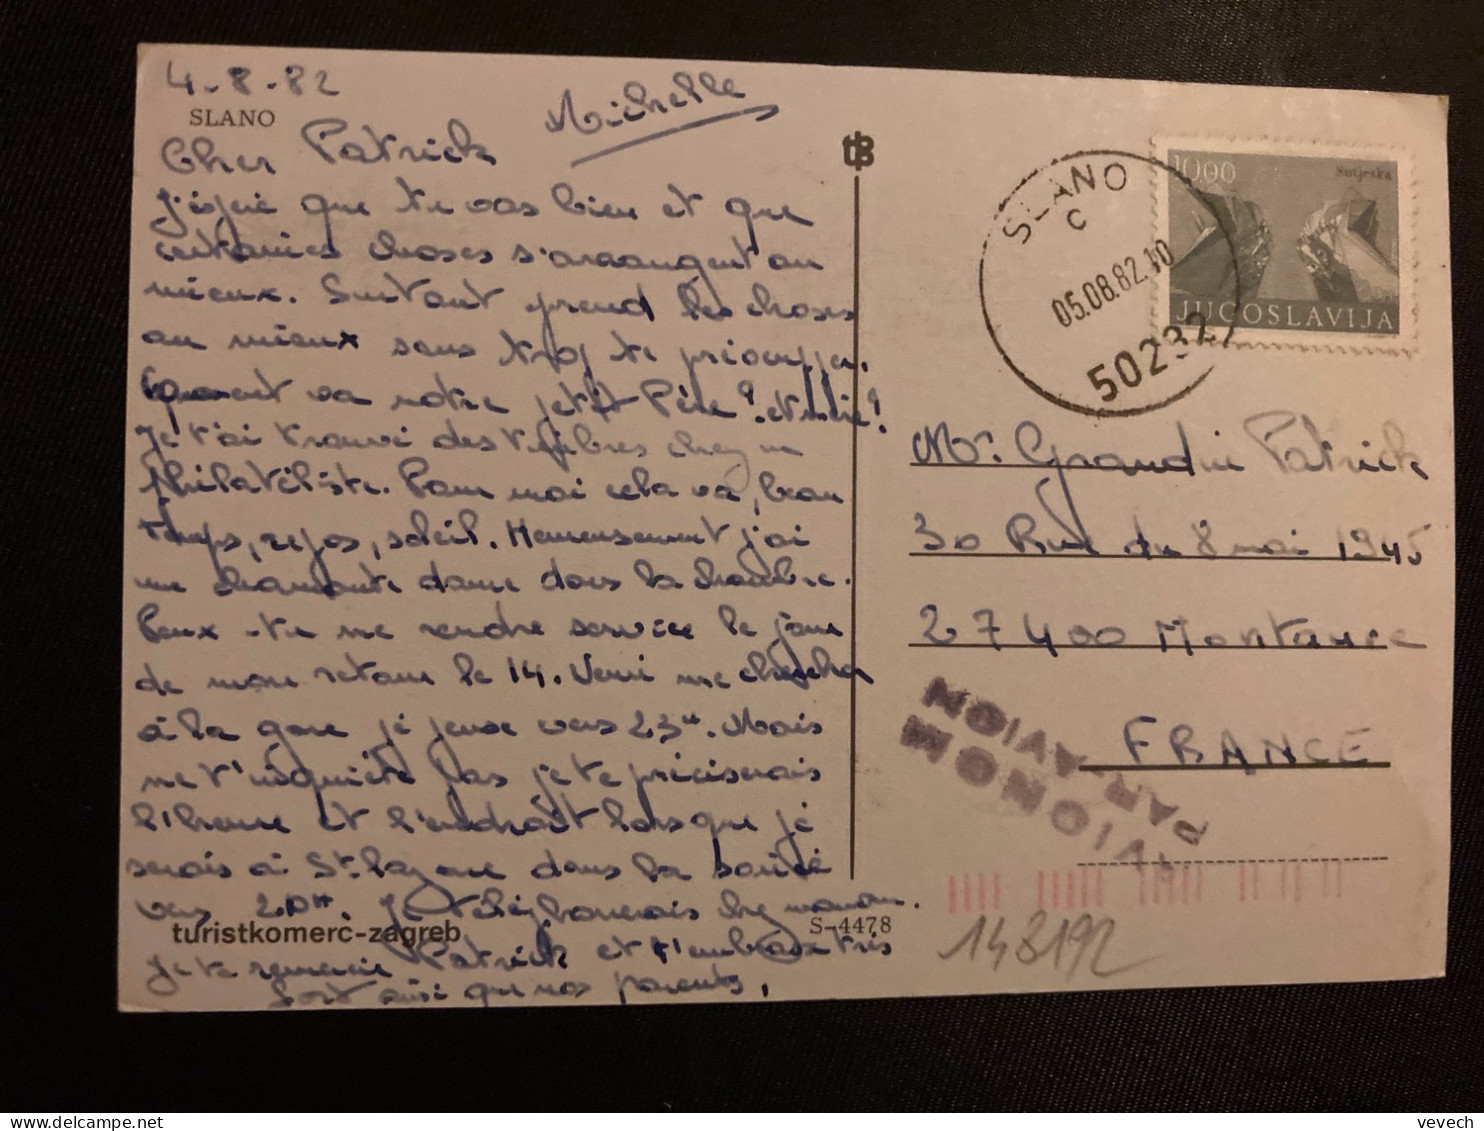 4-8-82
SLANO
Michelle
Cher Patrick
J'espère que tu vas bien et que
certaines choses s'arrangent au
mieux. Surtout prend les choses
au mieux sans trop te préoccuper.
Comment va notre petit Père? et
Je t'ai trouvé des timbres chez un
Philatéliste. Pour moi cela va, beau
temps, repos, soleil. Heureusement j'ai
une charmante dame dans la chambre.
Peux-tu me rendre service le jour
de mon retour le 14. Venir me chercher
à la gare je pense vers 23H. Mais
ne t'inquiète pas je te préciserais
l'heure et l'endroit lorsque je
serais à St Lazare dans la soirée
vers 20H. Je téléphonerais chez maman.
turistkomerc-zagreb
S-4478
Je te remercie Patrick et t'embrasse très
fort ainsi que nos parents,
tk
SLANO
C
05.08.82.10
50232
1000
Sutjeska
JUGOSLAVIJA
Mr. Grandin Patrick
30 Rue du 8 mai 1945
27400 Montaure
FRANCE
AVIONOM
PAR AVION